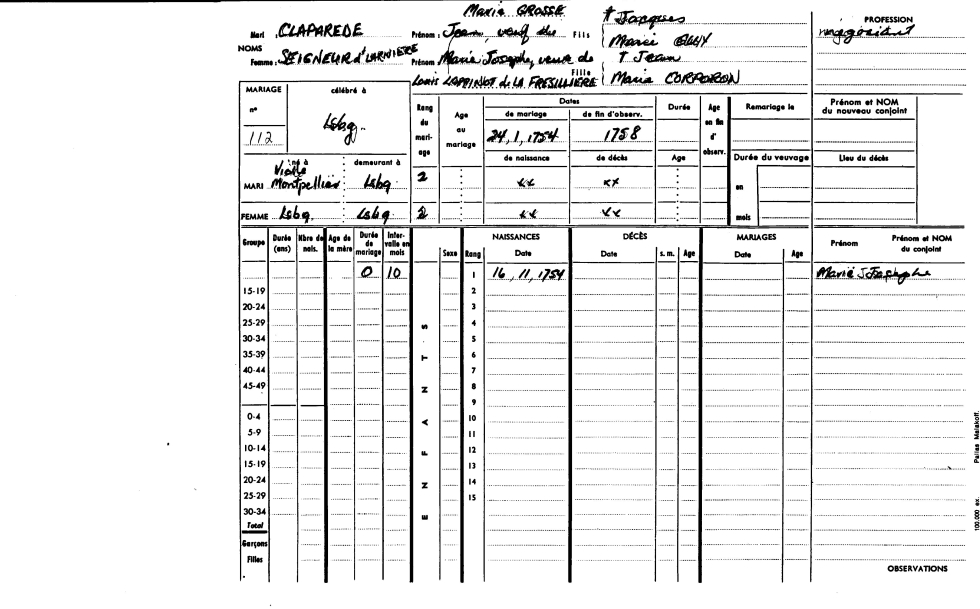 Maria GROSSE † Jacques PROFESSION
Mari : CLAPAREDE Prénom : Jean, veuf de Fils négociant
NOMS Marie
Femme : SEIGNEUR d'LARNIERE Prénom Marie Josephe, veuve de † Jean
Louis LAPPINOT de LA FRESILLIERE Fille Marie CORPORON
MARIAGE célébré à Rang du mariage Age au mariage Dates Durée Age en fin d'observ. Remariage le Prénom et NOM du nouveau conjoint
n° Lsbg. de mariage de fin d'observ.
112 24, 1, 1754 1758
né à demeurant à de naissance de décès Age Durée du veuvage Lieu du décès
MARI Montpellier Lsbg 2 xx xx en
FEMME Lsbg. Lsbg. 2 xx xx mois
Groupe Durée (ans) Nbre de nais. Age de la mère Durée de mariage Intervalle en mois Sexe Rang NAISSANCES Date DÉCÈS Date s. m. Age MARIAGES Date Age Prénom Prénom et NOM du conjoint
0 10 1 16, 11, 1754 Marie Josephe
15-19 2
20-24 3
25-29 4
30-34 5
35-39 6
40-44 7
45-49 8
9
0-4 10
5-9 11
10-14 12
15-19 13
20-24 14
25-29 15
30-34
Total
Garçons
Filles
ENFANTS
OBSERVATIONS
100.000 ex. Pallas Malakoff.